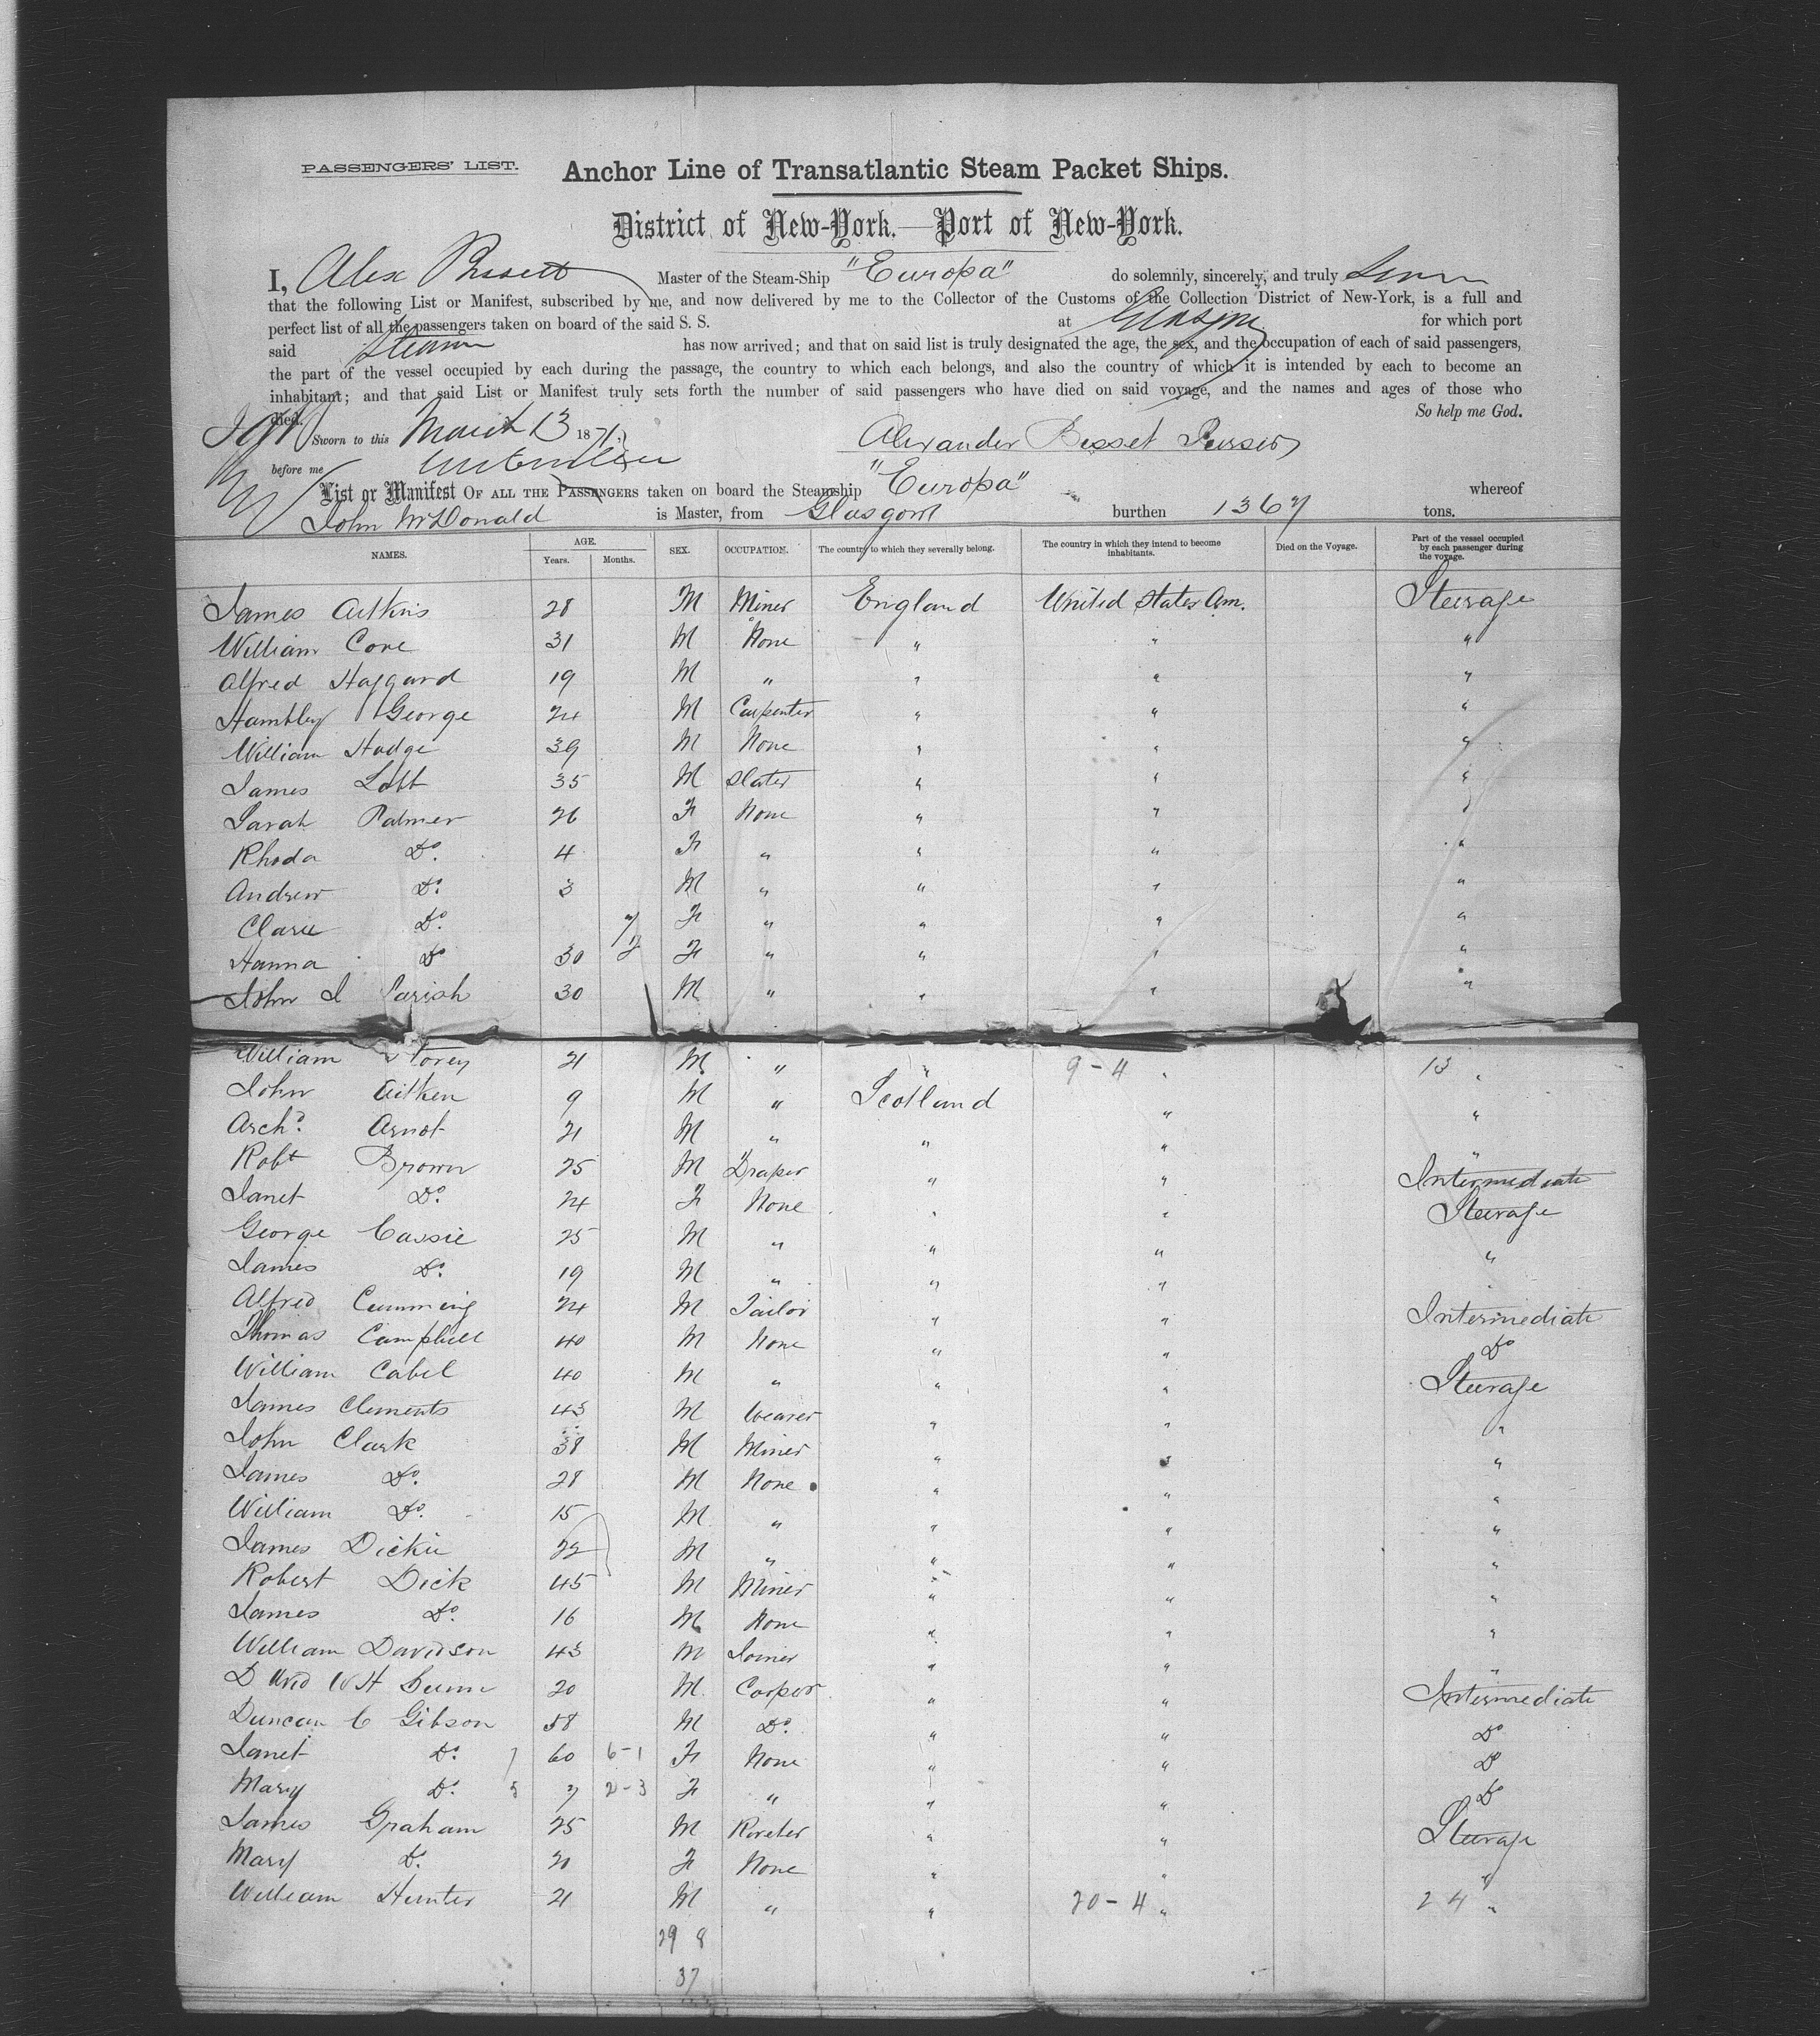 PASSENGERS' LIST. Anchor Line of Transatlantic Steam Packet Ships.
District of New-York.—Port of New-York.
I, Alex Bissett Master of the Steam-Ship "Europa" do solemnly, sincerely, and truly Swear
that the following List or Manifest, subscribed by me, and now delivered by me to the Collector of the Customs of the Collection District of New-York, is a full and
perfect list of all the passengers taken on board of the said S. S. at Glasgow for which port
said Steamer has now arrived; and that on said list is truly designated the age, the sex, and the occupation of each of said passengers,
the part of the vessel occupied by each during the passage, the country to which each belongs, and also the country of which it is intended by each to become an
inhabitant; and that said List or Manifest truly sets forth the number of said passengers who have died on said voyage, and the names and ages of those who
died. So help me God.
Sworn to this March 13 1871. Alexander Bisset Purser
before me "Europa"
List or Manifest OF ALL THE PASSENGERS taken on board the Steamship "Europa" whereof
John McDonald is Master, from Glasgow burthen 1367 tons.
NAMES. AGE. Years. Months. SEX. OCCUPATION. The country to which they severally belong. The country in which they intend to become inhabitants. Died on the Voyage. Part of the vessel occupied by each passenger during the voyage.
James Aitkins 28 M Miner England United States Am. Steerage
William Core 31 M None " " "
Alfred Haggard 19 M " " " "
Hambley George 24 M Carpenter " " "
William Hodge 39 M None " " "
James Lobb 35 M Slater " " "
Sarah Palmer 26 F None " " "
Rhoda Do. 4 F " " " "
Andrew Do. 3 M " " " "
Clara Do. 7/12 F " " " "
Hanna Do 30 F " " " "
John J Parish 30 M " " " "
William Storey 21 M " " 9-4 " 13 "
John Aitken 9 M " Scotland " "
Archd. Arnot 21 M " " " "
Robt Brown 25 M Draper " " Intermediate
Janet Do. 24 F None " " Steerage
George Cassie 25 M " " " "
James Do. 19 M " " " "
Alfred Cumming 24 M Tailor " " Intermediate
Thomas Campbell 40 M None " " Do
William Cabel 40 M " " " Steerage
James Clements 43 M Weaver " " "
John Clark 38 M Miner " " "
James Do. 28 M None " " "
William Do. 15 M " " " "
James Dickie 22 M " " " "
Robert Dick 45 M Miner " " "
James Do. 16 M None " " "
William Davidson 43 M Joiner " " "
David W H Dunn 20 M Cooper " " Intermediate
Duncan C Gibson 58 M Do. " " Do
Janet Do. 7 60 6-1 F None " " Do
Mary Do. 5 7 2-3 F " " " Do
James Graham 25 M Riveter " " Steerage
Mary Do. 20 F None " " "
William Hunter 21 M " " 20-4 " 24 "
29 8
37